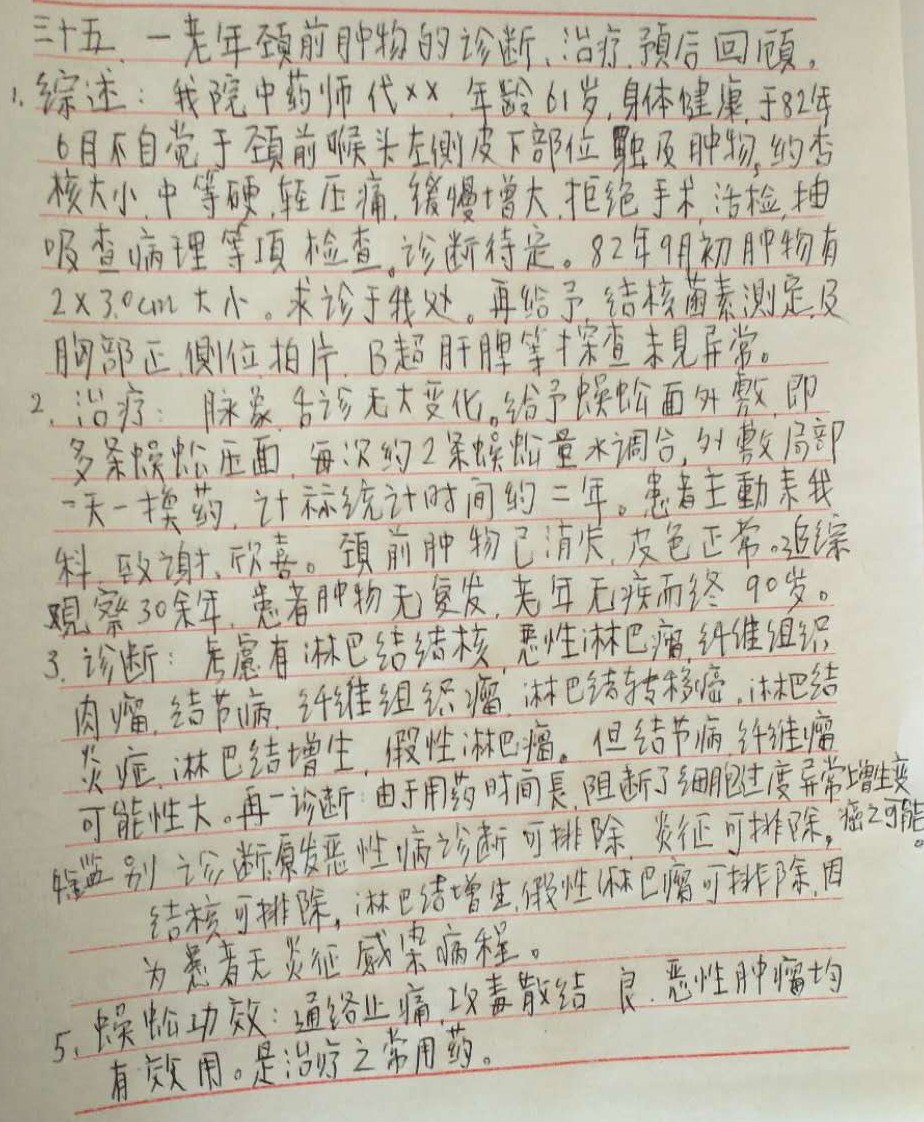 三十五、一老年颈前肿物的诊断、治疗、预后回顾。
1. 综述：我院中药师代××、年龄61岁,身体健康,于82年
6月不自觉于颈前喉头左侧皮下部位触及肿物,约杏
核大小、中等硬、轻压痛、缓慢增大、拒绝手术、活检、抽
吸查病理等项检查。诊断待定。82年9月初肿物有
2×3.0cm大小。求诊于我处。再给予、结核菌素测定及
胸部正、侧位拍片、B超肝脾等探查未見异常。
2、治疗：脉象、舌诊无大变化。给予蜈蚣面外敷、即
多条蜈蚣压面、每次约2条蜈蚣量水调合,外敷局部
一天一换药、计 统计时间约二年。患者主動来我
科、致谢、欣喜。颈前肿物已消失、皮色正常。追综
观察30余年、患者肿物无复发、老年无疾而终 90岁。
3、诊断：考慮有淋巴结结核、恶性淋巴瘤、纤维组织
肉瘤、结节病、纤维组织瘤、淋巴结转移癌、淋巴结
炎症、淋巴结增生、假性淋巴瘤。但结节病、纤维瘤
可能性大。再一诊断：由于用药时间長、阻断了细胞过度异常增生变
癌之可能。
鉴别诊断：原发恶性病诊断可排除、炎征可排除,
结核可排除,淋巴结增生、假性淋巴瘤可排除,因
为患者无炎征感染病程。
5、蜈蚣功效：通络止痛、攻毒散结 良、恶性肿瘤均
有效用。是治疗之常用药。